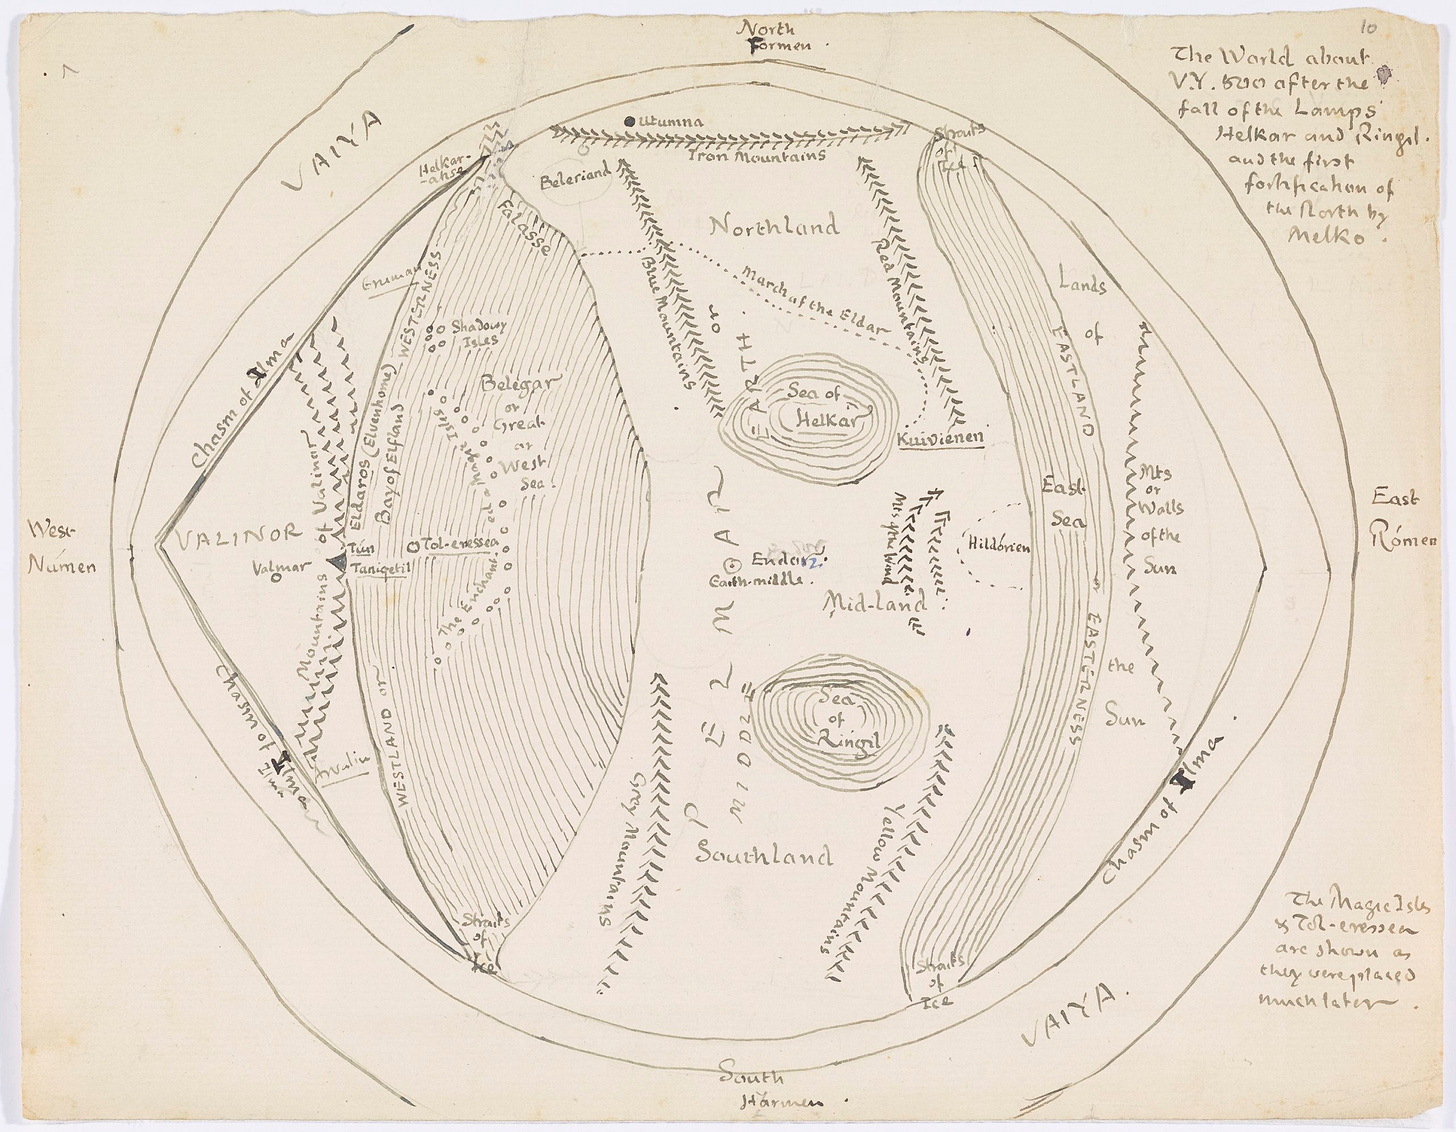 North
Formen .
10
The World about
V.Y. 500 after the
fall of the Lamps
Helkar and Ringil.
and the first
fortification of
the North by
Melko .
VAIYA
Utumna
Iron Mountains
Straits
of
Ice
Helkar-
-akse
Beleriand
Falasse
Northland
Eruman
WESTERNESS
Blue Mountains
March of the Eldar
Red Mountains
Lands
of
EASTLAND
Shadowy
Isles
Chasm of Ilma
Belegar
or
Great
or
West
Sea.
or
EARTH
Sea of
Helkar
Kuivienen
Eldaros (Elvenhome)
Bay of Elfland
The Enchanted or Magic Isles
Mountains of Valinor
West
Númen
VALINOR
Valmar
Tún
Taniqetil
Tol-eressea
PELMAR
Endor
Earth-middle.
Mts of the Wind
Mid-land
Hildórien
East
Sea
Mts
or
Walls
of the
Sun
East
Rómen
or EASTERNESS
the
Sun
MIDDLE
Sea
of
Ringil
WESTLAND or
Chasm of Ilma
Ilma
Arvalin
Gray Mountains
Southland
Yellow Mountains
Chasm of Ilma
Straits
of
Ice
Straits
of
Ice
The Magic Isles
& Tol-eressea
are shown as
they were placed
much later .
VAIYA.
South
Harmen .